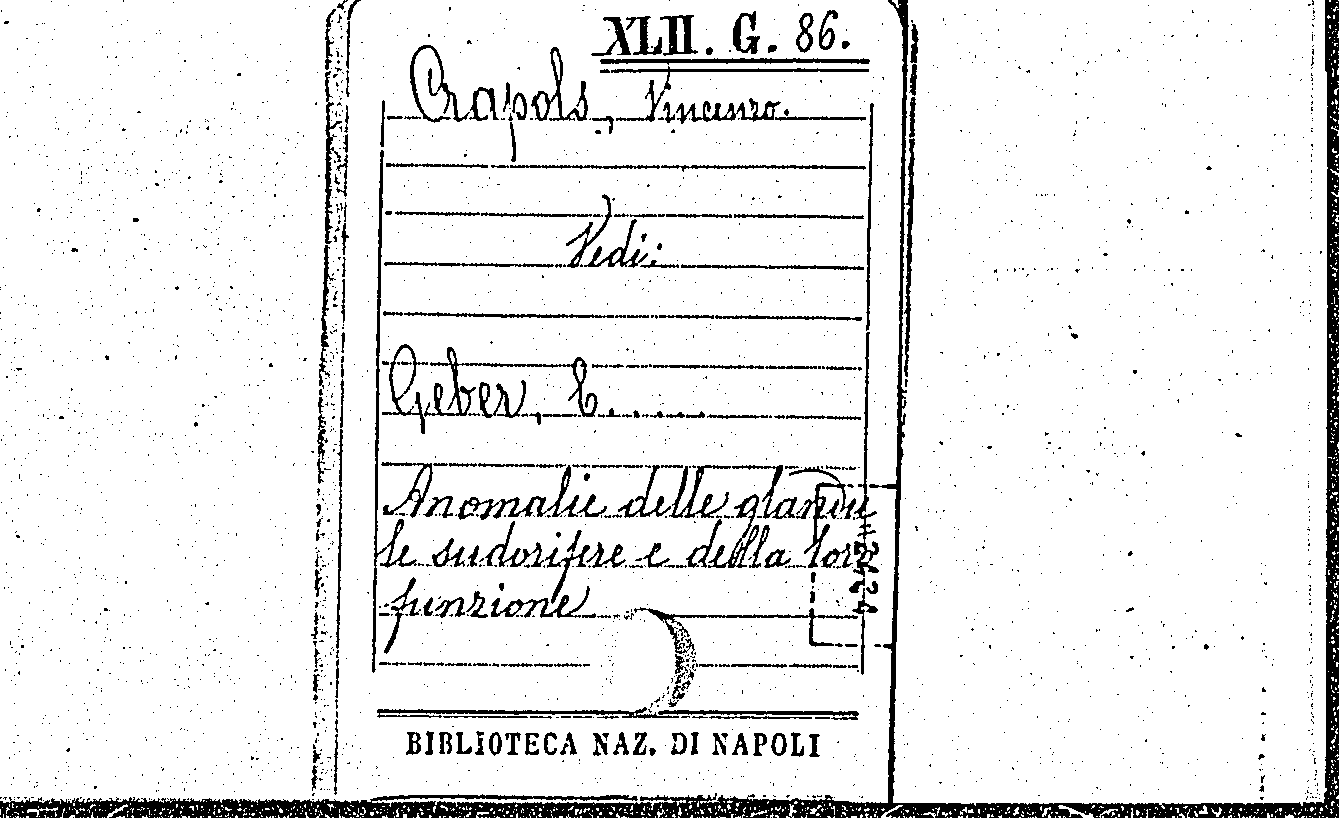 XLII. G. 86.
Crapols, Vincenzo.
Vedi:
Geber, E. . . . .
Anomalie delle glandu
le sudorifere e della loro
funzione
BIBLIOTECA NAZ. DI NAPOLI